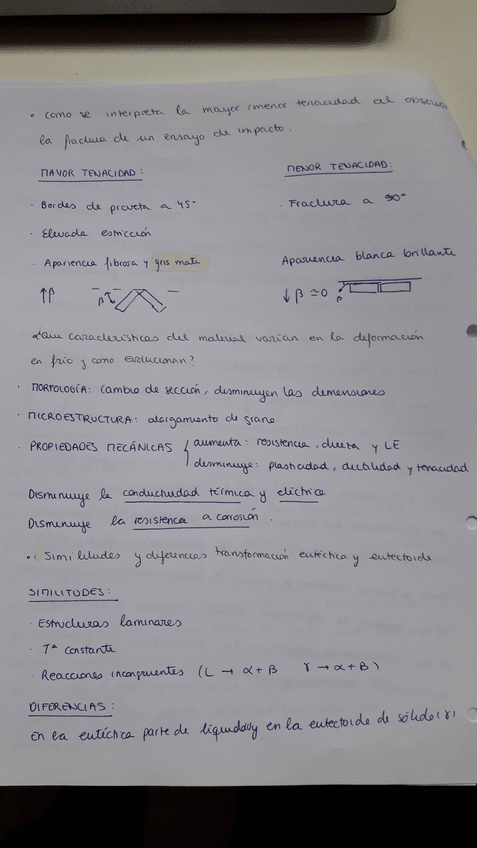 • Como se interpreta la mayor/menor tenacidad al observar
la fractura de un ensayo de impacto.
MAYOR TENACIDAD:
· Bordes de proveta a 45°
· Elevada estricción
· Apariencia fibrosa y gris mate
↑β β
MENOR TENACIDAD:
· Fractura a 90°
Apariencia blanca brillante
↓ β ≃ 0 β
¿Que caracteristicas del material varian en la deformación
en frio y como evolucionan?
· MORFOLOGÍA: cambio de sección, disminuyen las demensiones
· MICROESTRUCTURA: alargamiento de grano
· PROPIEDADES MECÁNICAS { aumenta: resistencia, dureza y LE
disminuye: plasticidad, ductilidad y tenacidad
Disminuye la conductividad térmica y eléctrica
Disminuye la resistencia a corosión.
• Similitudes y diferencias transformación eutéctica y eutectoide
SIMILITUDES:
· Estructuras laminares
· Tª constante
· Reacciones incongruentes (L → α + β γ → α + β)
DIFERENCIAS:
en la eutéctica parte de liquido y en la eutectoide de sólido (γ)